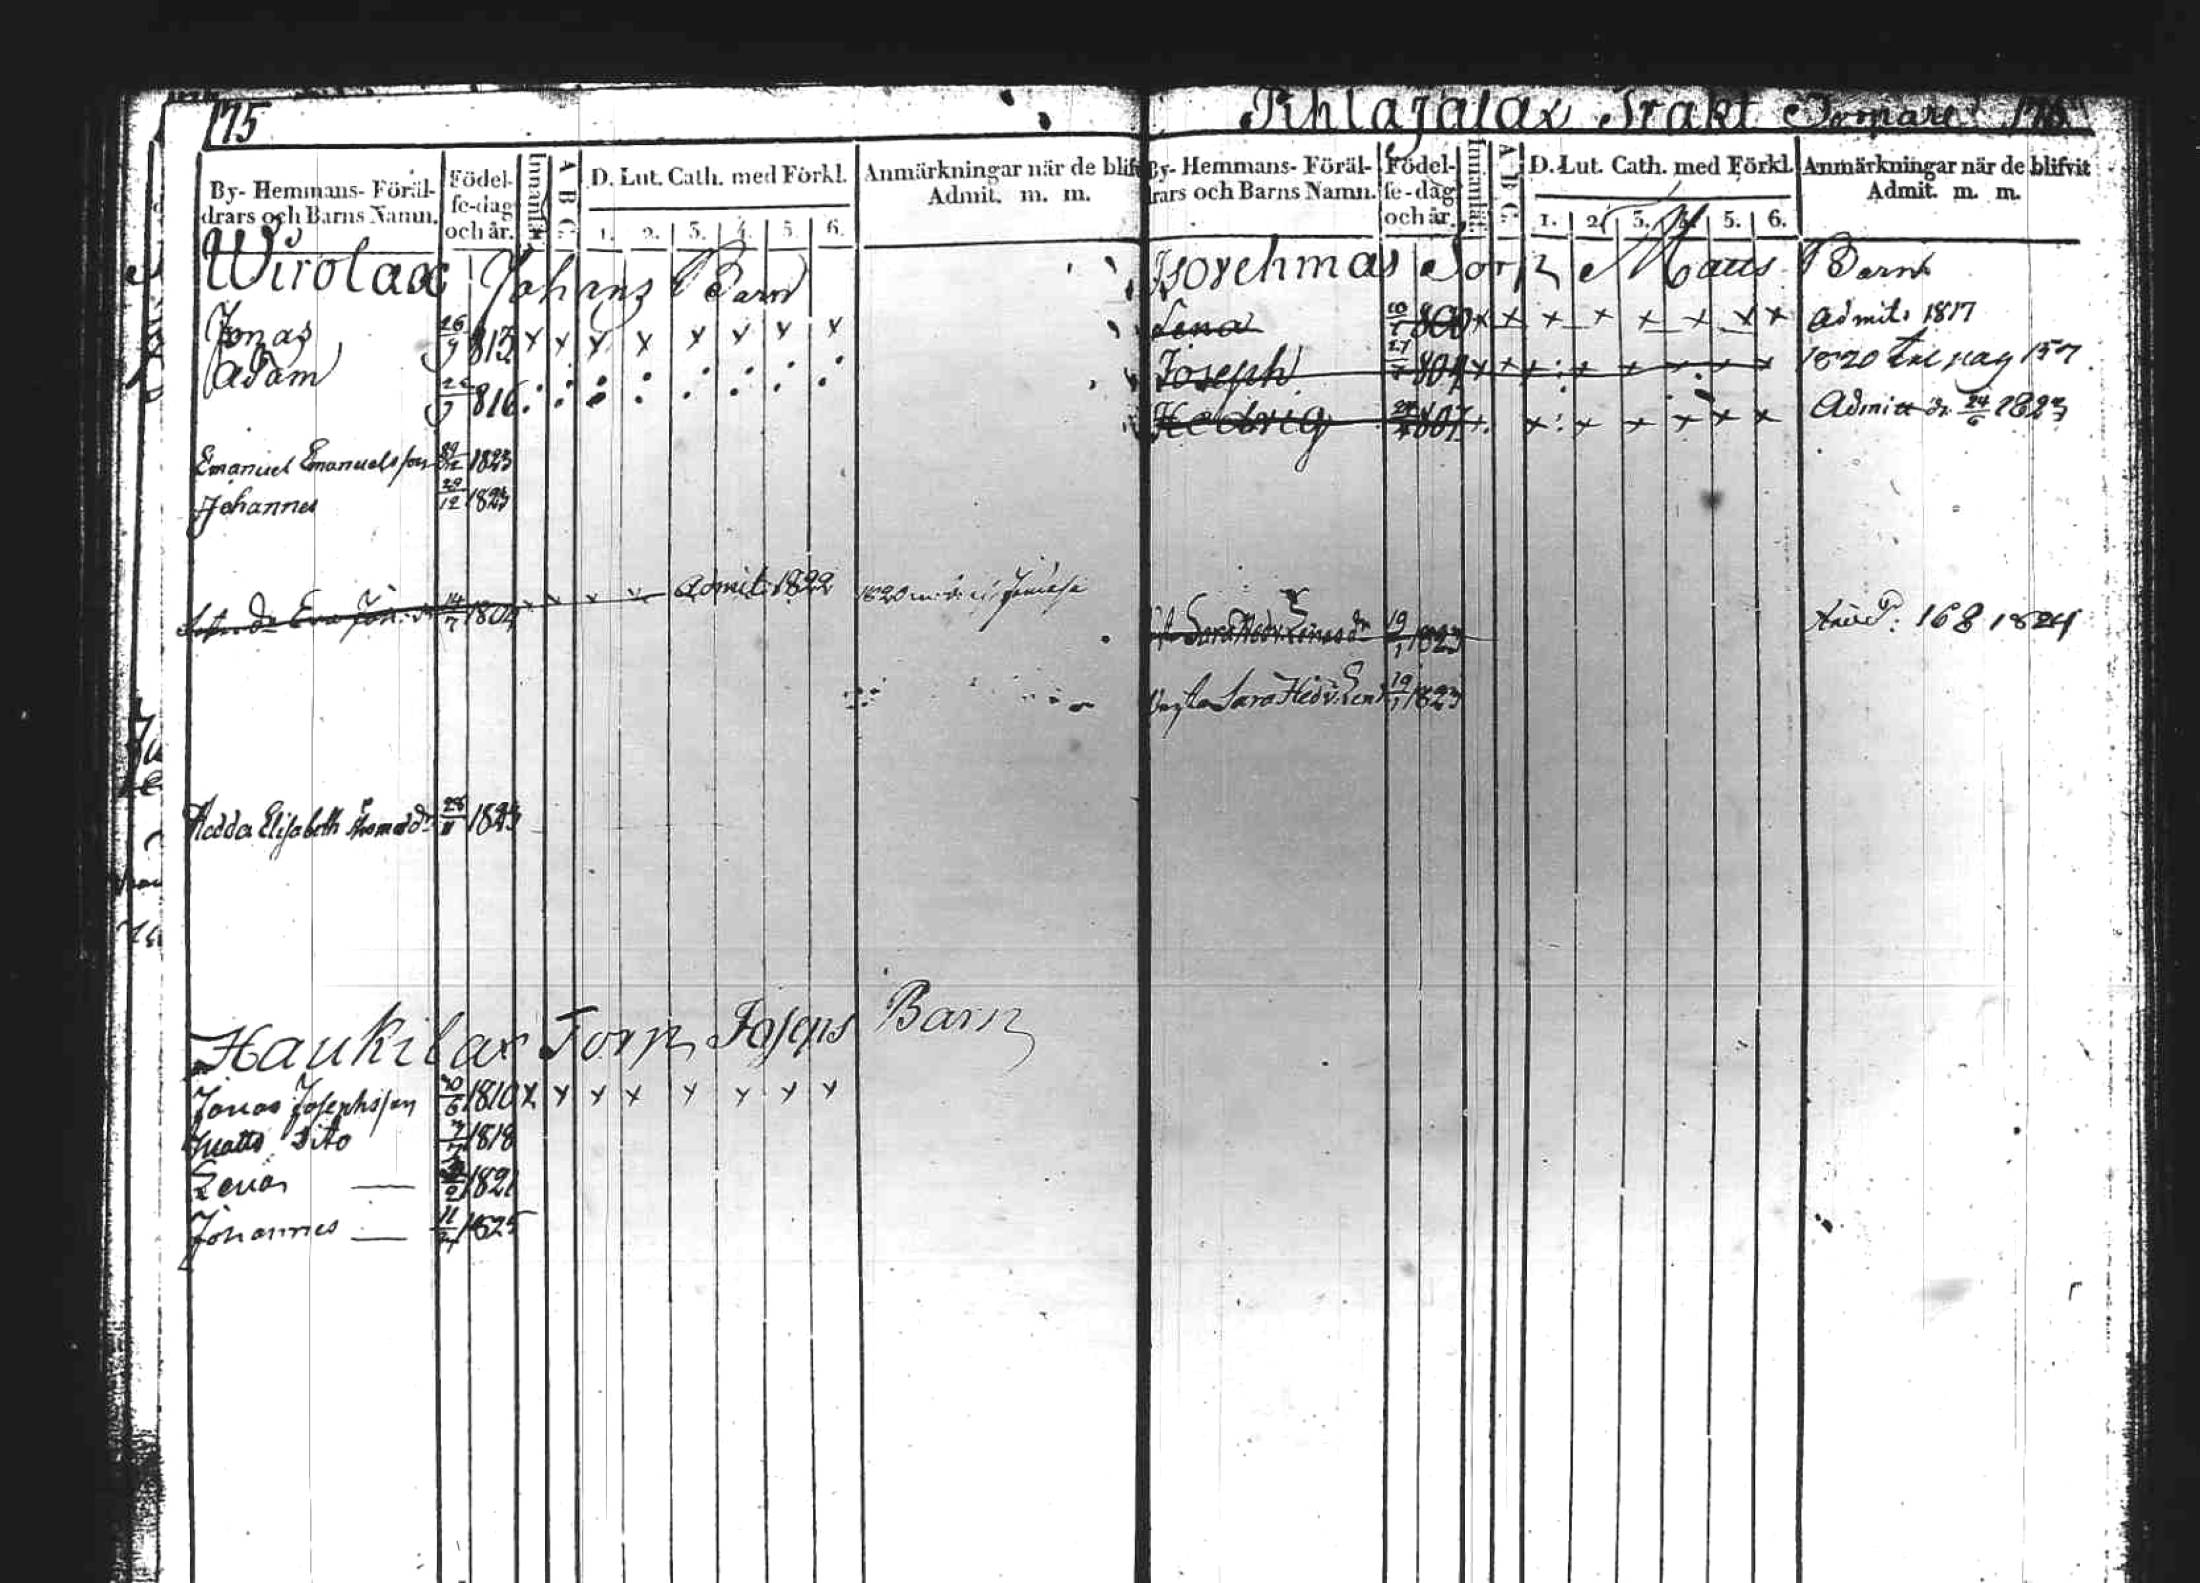 175
By- Hemmans- Föräl-
drars och Barns Namn.
Födel-
se-dag
och år.
Innanläs.
A B C.
D. Lut. Cath. med Förkl.
1. 2. 3. 4. 5. 6.
Anmärkningar när de blif
Admit. m. m.
Wirolax Johans Barn
Jonas 26/9 813 x x x x x x x x
Adam 9 816
Emanuel Emanuelsson 1823
Johannes 29/12 1823
Eva 14/7 1804 x x x x Admit: 1822 1820
Hedda Elisabeth 28/11 1823
Haukilax Torp Joseps Barn
Jonas Josephsson 6 1810 x x x x x x x x
Matts Dito 1818
Lena — 2 1821
Johannes — 11 1825
Pihlajalax Trakt
By- Hemmans- Föräl-
drars och Barns Namn.
Födel-
se-dag
och år.
Innanläs.
A B C.
D. Lut. Cath. med Förkl.
1. 2. 3. 4. 5. 6.
Anmärkningar när de blifvit
Admit. m. m.
Torp Matts Barn
Lena 800 x x x x x x x x Admit. 1817
Joseph 27 804 x x x x x x x x 1820 till pag 157
Hedvig 807 x x x x x x x Admitt d. 24/6 1823
Sara Hedv. 19/1 1823 168 1824
Sara Hedv. 19/1 1823